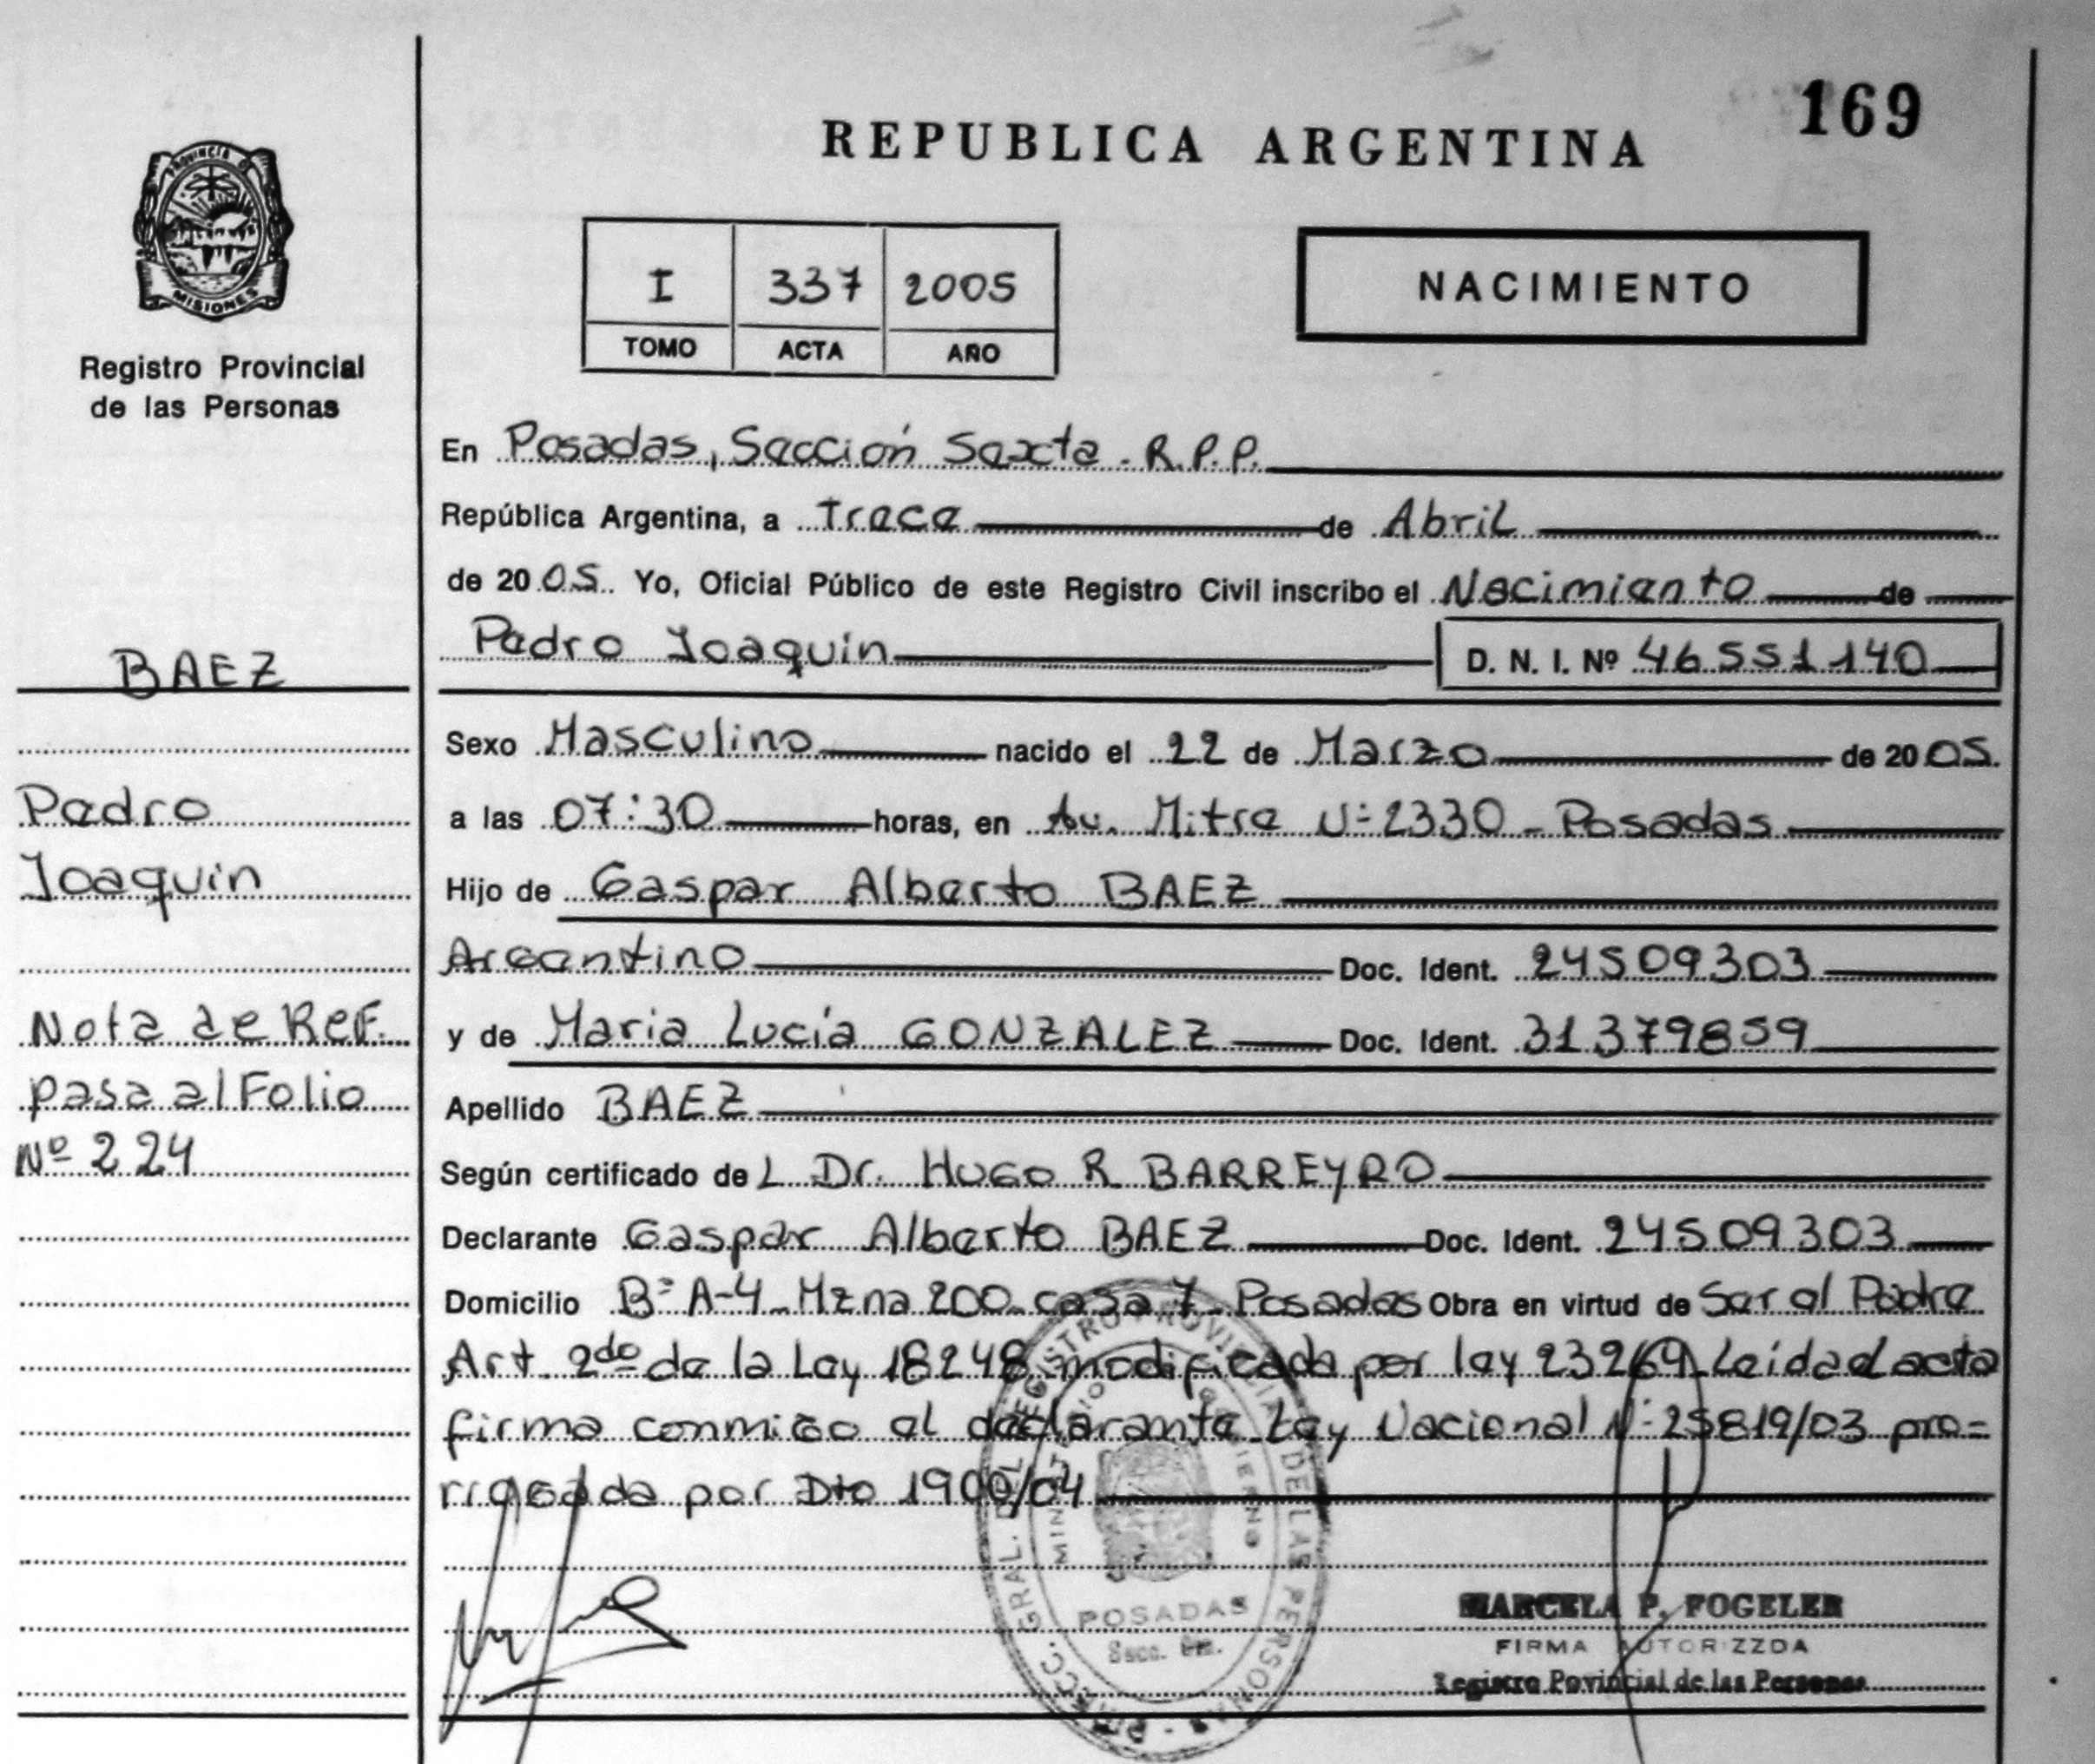 169
REPUBLICA ARGENTINA
PROVINCIA DE
MISIONES
Registro Provincial
de las Personas
I 337 2005
TOMO ACTA AÑO
NACIMIENTO
En Posadas, Sección Sexta - R.P.P.
República Argentina, a Trece de Abril
de 2005. Yo, Oficial Público de este Registro Civil inscribo el Nacimiento de
Pedro Joaquín D. N. I. Nº 46551140
Sexo Masculino nacido el 22 de Marzo de 2005.
a las 07:30 horas, en Av. Mitre Nº 2330 - Posadas
Hijo de Gaspar Alberto BAEZ
Argentino Doc. Ident. 24509303
y de Maria Lucía GONZALEZ Doc. Ident. 31379859
Apellido BAEZ
Según certificado deL Dr. HUGO R BARREYRO
Declarante Gaspar Alberto BAEZ Doc. Ident. 24509303
Domicilio Bº A-4 Mzna 200 casa 7 - Posadas Obra en virtud de Ser el Padre
Art. 2do de la Ley 18248 modificada por ley 23264 Leída el acta
firma conmigo el declarante Ley Nacional Nº 25819/03 pro=
rrogada por Dto 1900/04
BAEZ
Pedro
Joaquin
Nota de Ref.
pasa al Folio
Nº 224
DIRECC. GRAL. DEL REGISTRO PROVINCIAL DE LAS PERSONAS
MINISTERIO DE GOBIERNO
POSADAS
Secc. 6ta.
MARCELA P. FOGELER
FIRMA AUTORIZZDA
Registro Povincial de las Personas